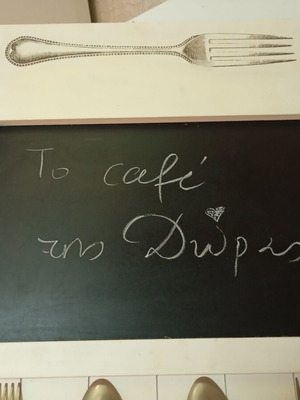 Το café
της Δώρας